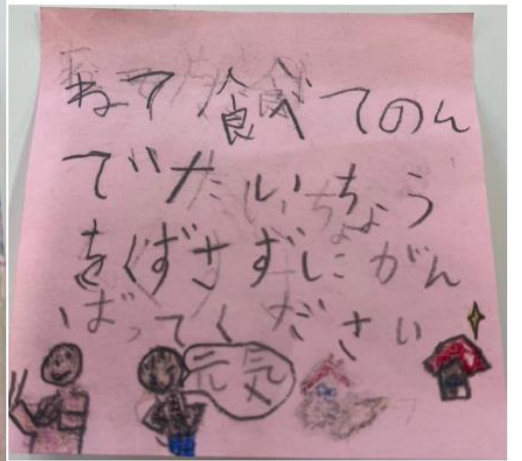 ねて食べてのん
でたいちょう
をくずさずにがん
ばってください
元気